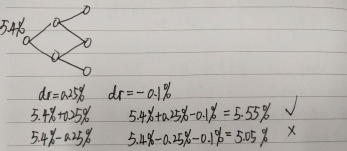 5.4%
dr=0.25% dr=-0.1%
5.4%+0.25% 5.4%+0.25%-0.1%=5.55% ✓
5.4%-0.25% 5.4%-0.25%-0.1%=5.05% ×